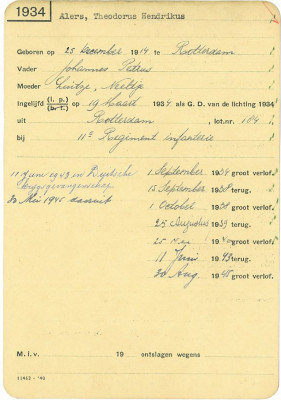 1934
Alers, Theodorus Hendrikus
Geboren op 25 December 1914 te Rotterdam
Vader Johannes Petrus
Moeder Lintje, Neeltje
Ingelijfd (i. p.) (b.t.) op 19 Maart 1934 als G. D. van de lichting 1934
uit Rotterdam, lot.nr: 104
bij 11e Regiment infanterie
1 September 1934 groot verlof.
11 Juni 1943 in Duitsche krijgsgevangenschap
15 September 1938 terug.
30 Mei 1945 daaruit
1 October 1938 groot verlof.
25 Augustus 1939 terug.
25 Mei 1940 groot verlof.
11 Juni 1943 terug.
30 Aug. 1945 groot verlof.
M.i.v. 19 ontslagen wegens